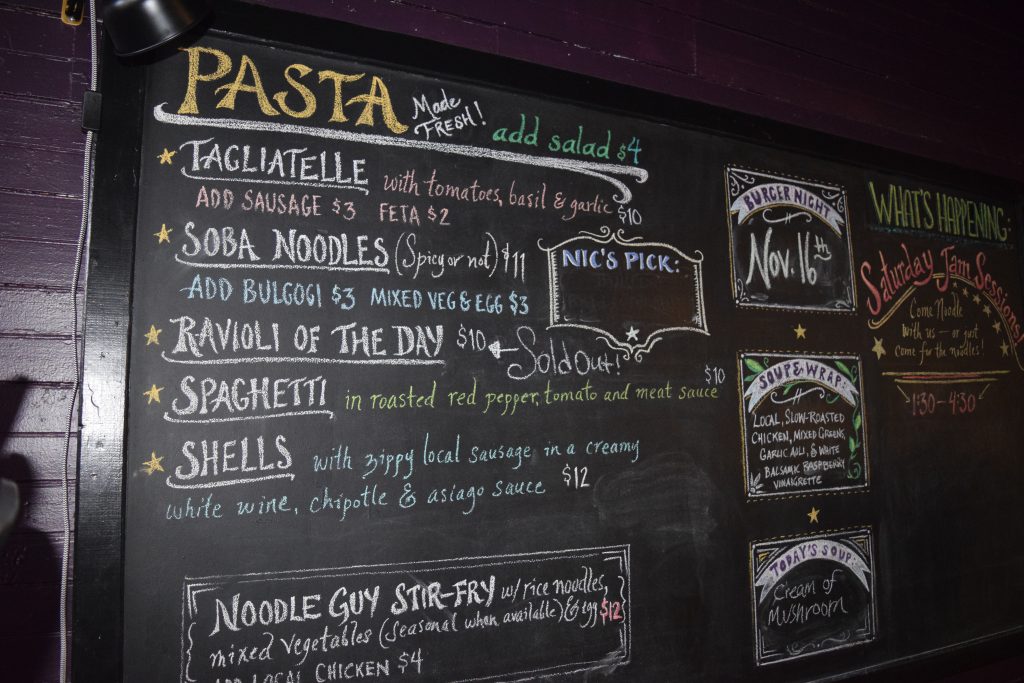 PASTA Made FRESH! add salad $4
TAGLIATELLE with tomatoes, basil & garlic $10
ADD SAUSAGE $3 FETA $2
SOBA NOODLES (Spicy or not) $11
ADD BULGOGI $3 MIXED VEG & EGG $3
RAVIOLI OF THE DAY $10 Sold Out!
SPAGHETTI in roasted red pepper, tomato and meat sauce $10
SHELLS with zippy local sausage in a creamy
white wine, chipotle & asiago sauce $12
NOODLE GUY STIR-FRY w/ rice noodles,
mixed vegetables (seasonal when available) & egg $12
ADD LOCAL CHICKEN $4
NIC'S PICK:
BURGER NIGHT
Nov. 16th
SOUP & WRAP:
LOCAL, SLOW-ROASTED
CHICKEN, MIXED GREENS
GARLIC AILI, & WHITE
BALSAMIC RASPBERRY
VINAIGRETTE
TODAY'S SOUP:
Cream of
MUSHROOM
WHAT'S HAPPENING:
Saturday Jam Sessions!
Come Noodle
with us — or just
come for the noodles!
1:30-4:30